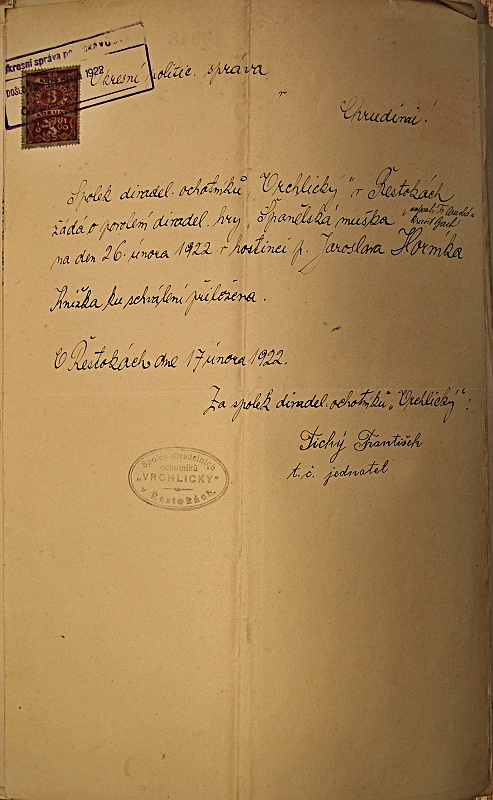 Okresní správa
DOŠLO 1922
3
Okresní politic. správa
v
Chrudimi!
Spolek divadel. ochotníků „Vrchlický" v Řestokách
žádá o povolení divadel. hry „Španělská muška"
na den 26. února 1922 v hostinci p. Jaroslava
Knížka ku schválení přiložena.
V Řestokách dne 17 února 1922.
Za spolek divadel. ochotníků „Vrchlický":
Tichý František
t. č. jednatel
Spolek divadelních
ochotníků
„VRCHLICKÝ"
v Řestokách.